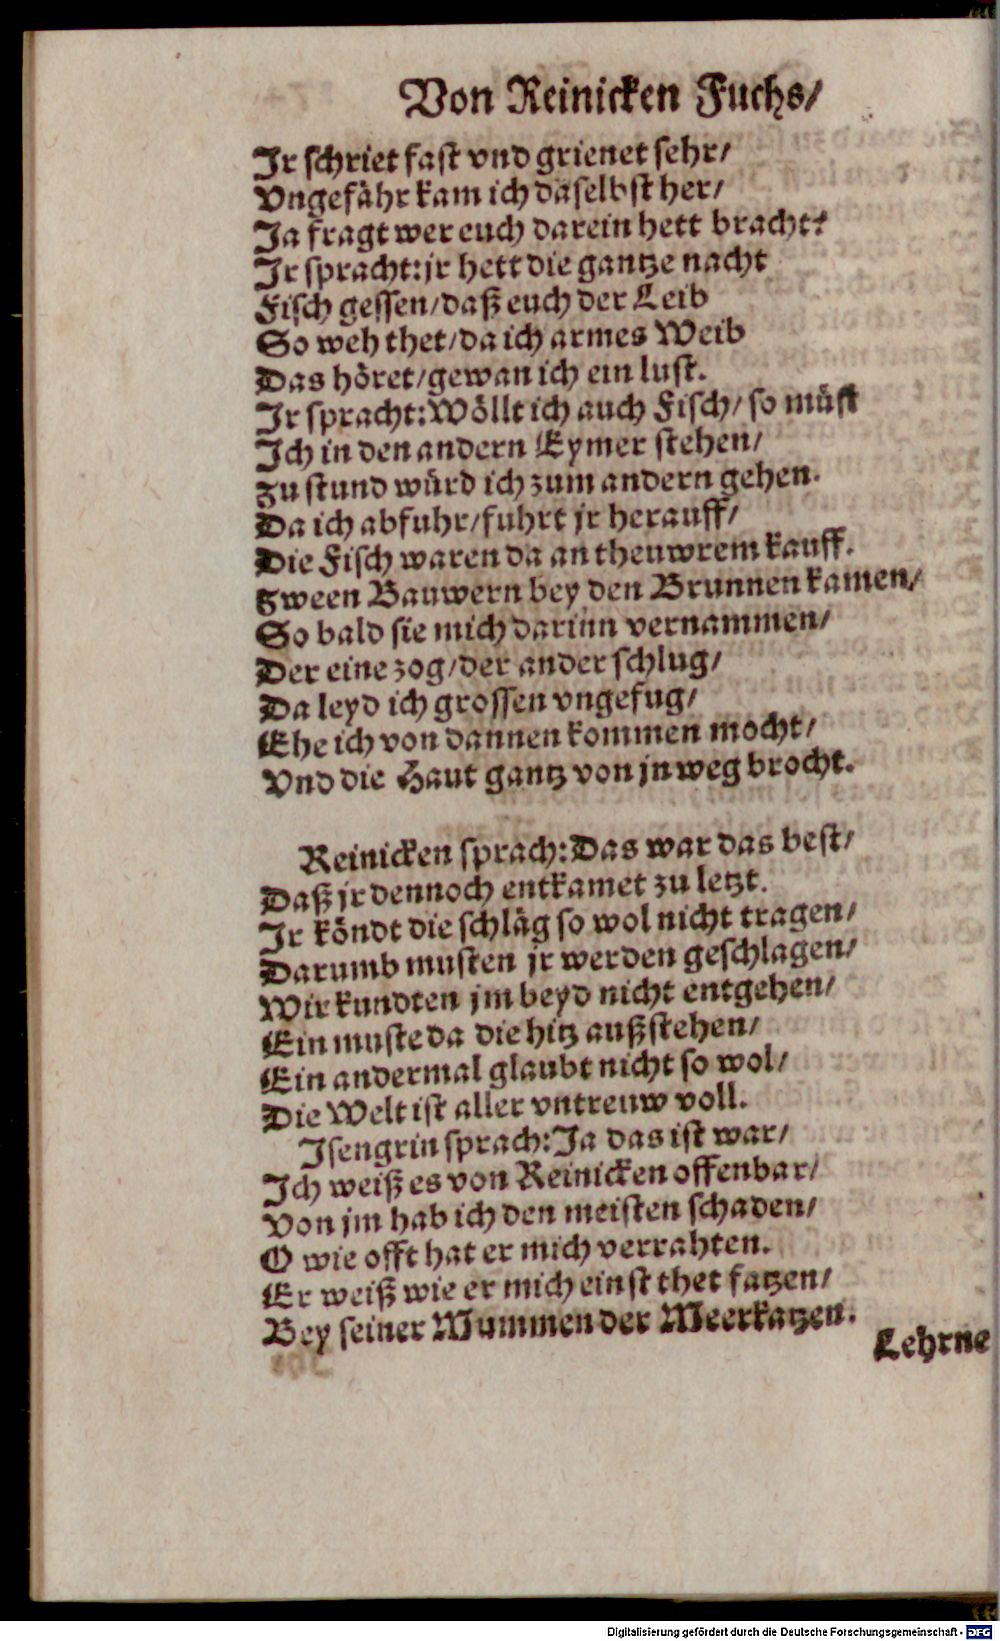 Von Reinicken Fuchs/
Ir schriet fast vnd grienet sehr/
Vngefähr kam ich daselbst her/
Ja fragt wer euch darein hett bracht?
Ir spracht: jr hett die gantze nacht
Fisch gessen/ daß euch der Leib
So weh thet/ da ich armes Weib
Das höret/ gewan ich ein lust.
Ir spracht: Wöllt ich auch Fisch/ so müst
Ich in den andern Eymer stehen/
Zu stund würd ich zum andern gehen.
Da ich abfuhr/ fuhrt jr herauff/
Die Fisch waren da an theuwrem kauff.
Zween Bauwern bey den Brunnen kamen/
So bald sie mich darinn vernammen/
Der eine zog/ der ander schlug/
Da leyd ich grossen vngefug/
Ehe ich von dannen kommen mocht/
Vnd die Haut gantz von jn weg brocht.
Reinicken sprach: Das war das best/
Daß jr dennoch entkamet zu letzt.
Ir köndt die schläg so wol nicht tragen/
Darumb musten jr werden geschlagen/
Wir kundten jm beyd nicht entgehen/
Ein muste da die hitz außstehen/
Ein andermal glaubt nicht so wol/
Die Welt ist aller vntreuw voll.
Isengrin sprach: Ja das ist war/
Ich weiß es von Reinicken offenbar/
Von jm hab ich den meisten schaden/
O wie offt hat er mich verrahten.
Er weiß wie er mich einst thet fatzen/
Bey seiner Mummen der Meerkatzen.
Lehrne
Digitalisierung gefördert durch die Deutsche Forschungsgemeinschaft - DFG